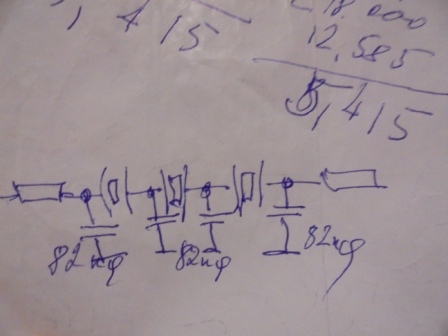 , 415
18.000
12,585
5,415
82пф 82пф 82пф